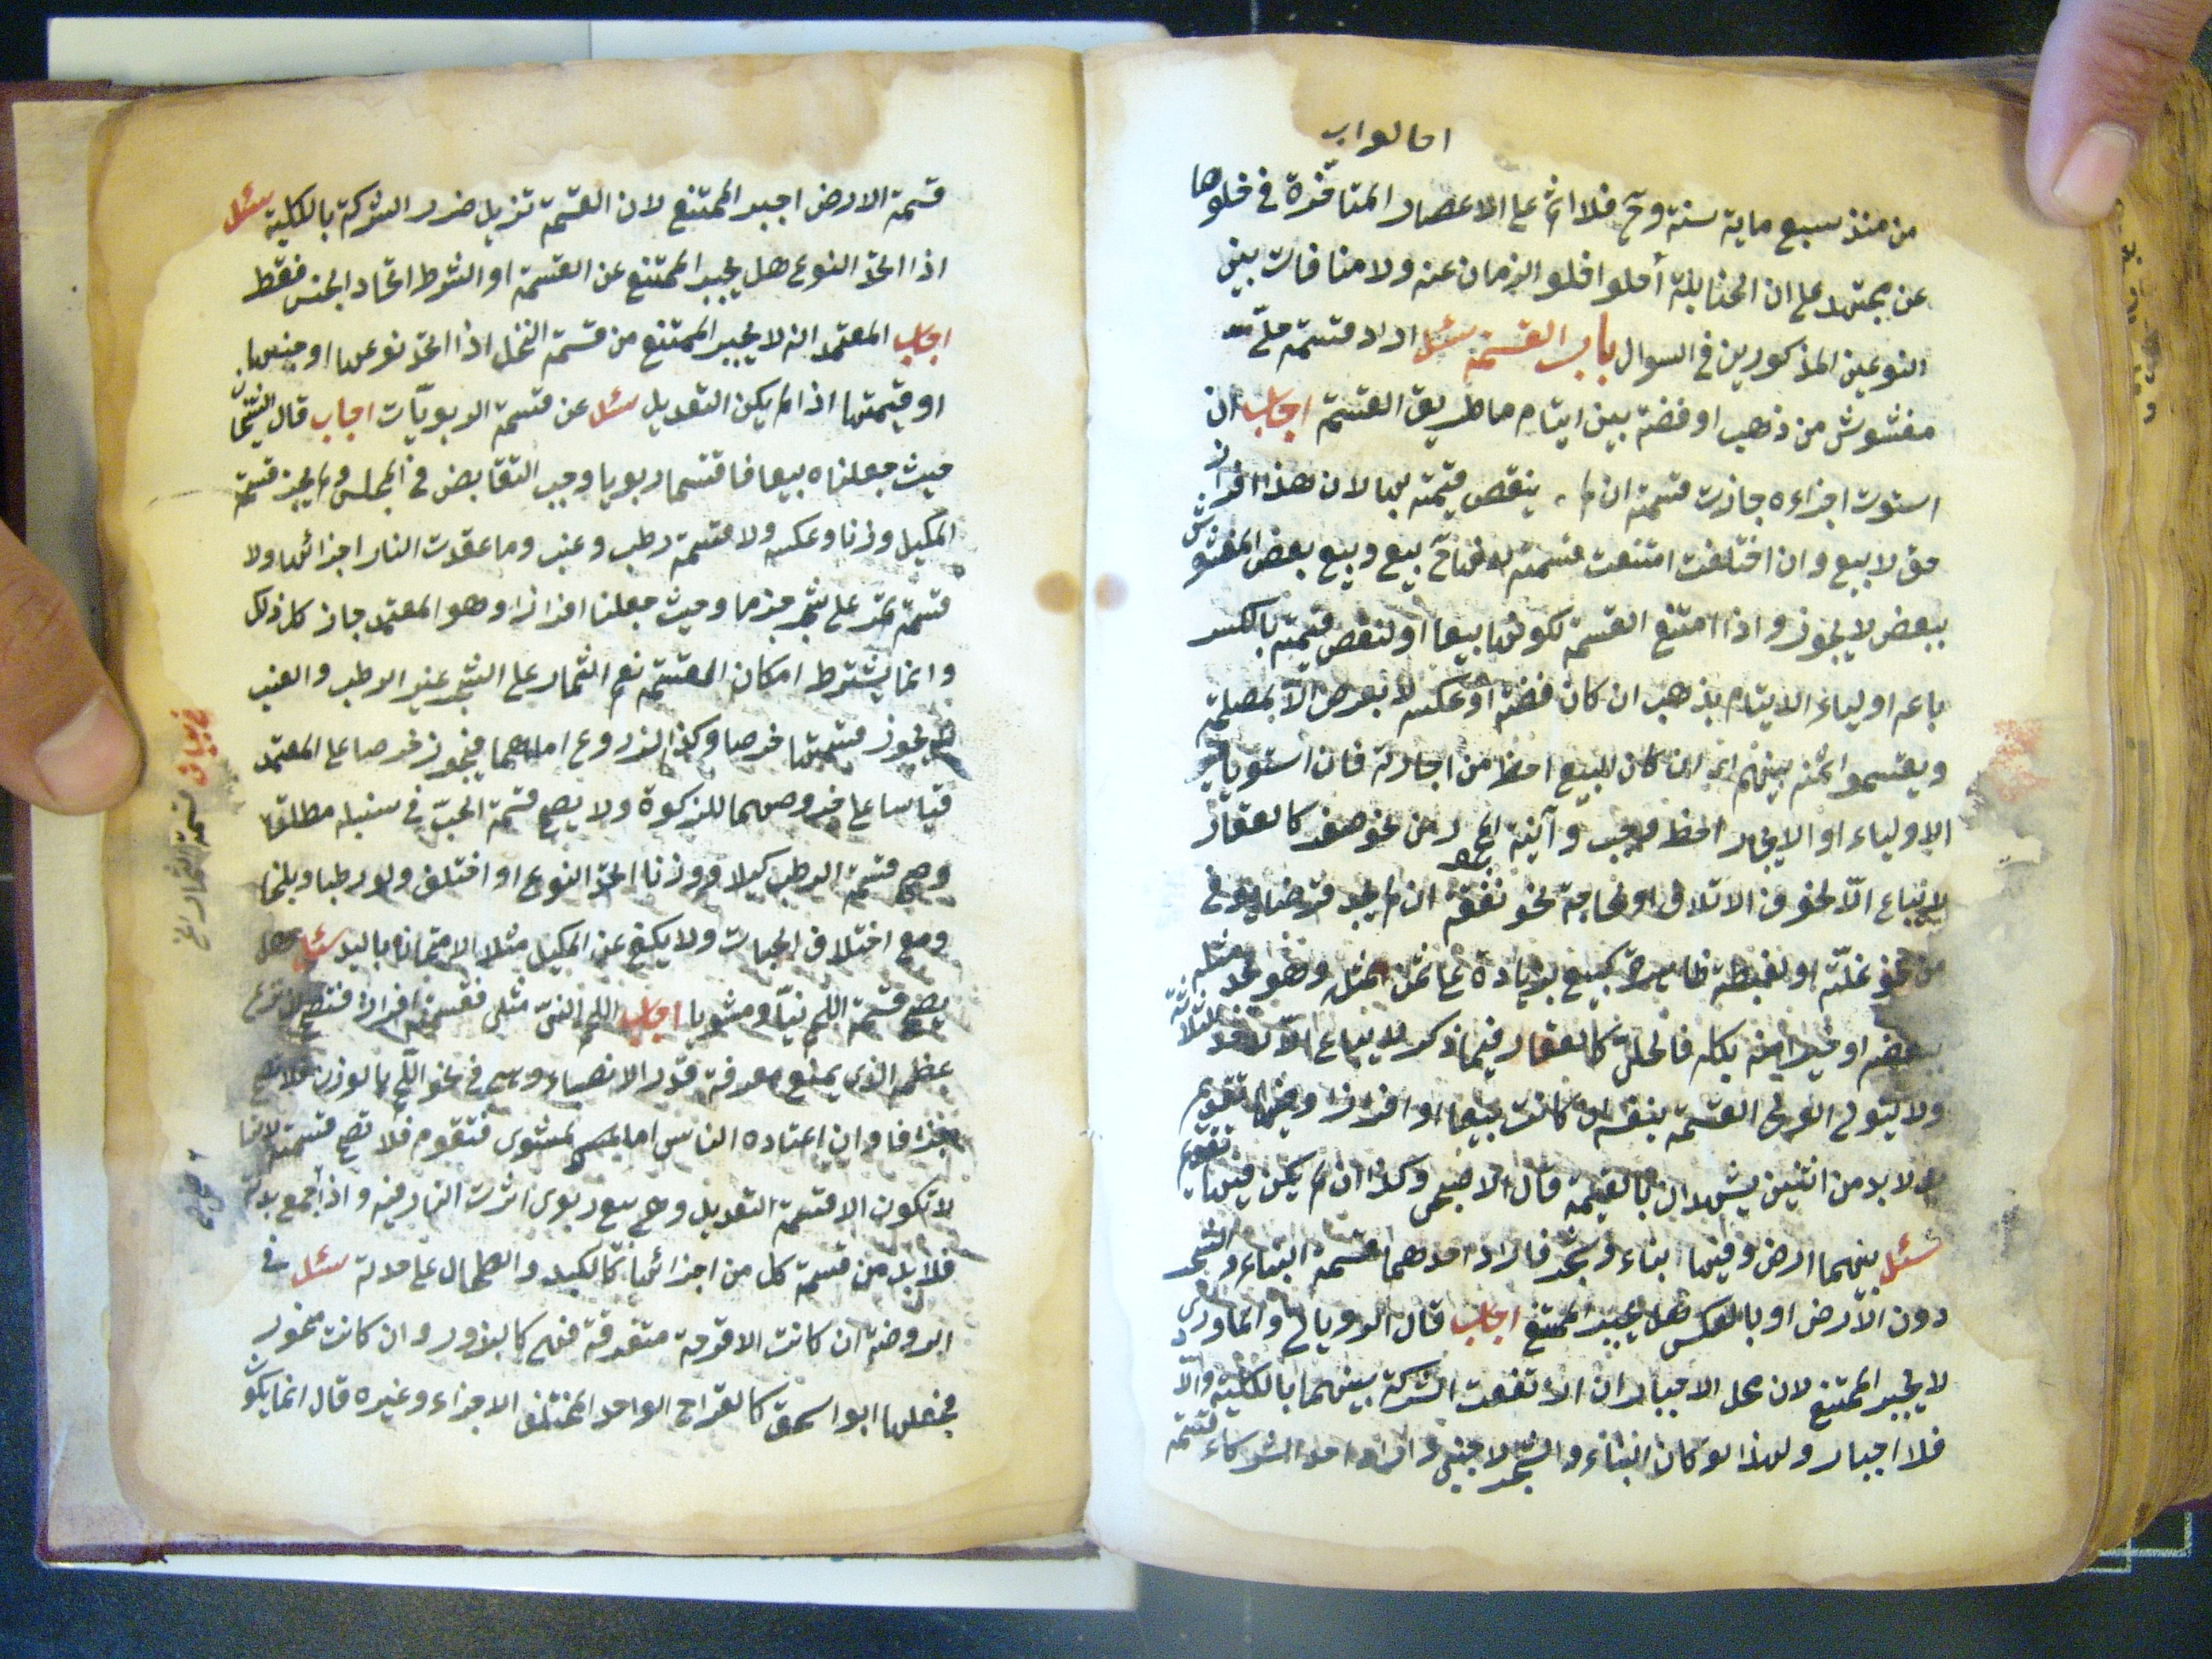 من منذ سبع ماية سنة وح فلا اثم على الاعصار المتاخرة في خلوها
عن مجتهد على ان الحنابلة أحلوا خلو الزمان عنه ولا منافات بين
النوعين المذكورين في السوال باب القسمة سئل اراد قسمة حلي
مغشوش من ذهب او فضة بين ايتام ما طريق القسمة اجاب ان
استوت اجزاءه جازت قسمته ان لم ينقص قيمته بها لان هذا افراز
حق لا بيع وان اختلفت امتنعت قسمته لانها ح بيع وبيع بعض المغشوش
ببعض لا يجوز واذا امتنع القسمة لكونها بيعا او لنقص قيمته بالكسر
باعه اولياء الايتام بذهب ان كان فضة او عكسه لا بعرض الا لمصلحة
ويقسموا ثمنه بينهم اي ان كان البيع احظ من اجارته فان استويا يخير
الاولياء او الايجار احظ وجب وآنية نحو صفر كالعقار
لا يباع الا لخوف الاتلاف او لحاجة نحو نفقة ان لم يجد قرضا يوفي
من نحو غلته او لغبطة ظاهرة كبيع بزيادة على ثمن المثل وهو يجد مثله
ببعضه او خيرا منه بكله فالحلي كالعقار فيما ذكر فلا يباع الا لاحد الثلاثة
ولا يتولى الولي القسمة بنفسه ان كانت بيعا او افرازا وفيها تقويم
بل لا بد من اثنين يشهدان بالقيمة قال الاصبحي وكذا ان لم يكن فيها تقويم
سئل بينهما ارض وفيها بناء وشجر فاراد احدهما قسمة البناء والشجر
دون الارض او بالعكس هل يجبر الممتنع اجاب قال الروياني والماوردي
لا يجبر الممتنع لان محل الاجبار ان ارتفعت الشركة بينهما بالكلية والا
فلا اجبار ولهذا لو كان البناء والشجر لاجنبي واراد احد الشركاء قسمة
قسمة الارض اجبر الممتنع لان القسمة تزيل ضرر الشركة بالكلية سئل
اذا اتحد النوع هل يجبر الممتنع عن القسمة او الشرط اتحاد الجنس فقط
اجاب المعتمد انه لا يجبر الممتنع من قسمة النخل اذا اتحد نوعها او جنسها
او قيمتها اذا لم يكن التعديل سئل عن قسمة الربويات اجاب قال الشيخان
حيث جعلناه بيعا فاقتسما ربويا وجب التقابض في المجلس ولم يجز قسمة
المكيل وزنا وعكسه ولا قسمة رطب وعنب وما عقدت النار اجزائها ولا
قسمة ثمر على شجر جزما وحيث جعلنا افرازا وهو المعتمد جاز كل ذلك
وانما يشترط امكان القسمة نعم الثمار على الشجر غير الرطب والعنب
لا يجوز قسمتها خرصا وكذا الزروع اما هما فيجوز خرصا على المعتمد
قياسا على خروصهما للزكوة ولا يصح قسمة الحب في سنبله مطلقا
وصح قسمة الرطب كيلا ووزنا اتحد النوع او اختلف ولو رطبا وبلحا
ومع اختلاف الحبات ولا يكفي عن المكيل مثلا الامتحان باليد سئل هل
يصح قسمة اللحم نيا ومشويا اجاب اللحم الني مثلي فقسمته افراز فتصح ان نزع
عظمه الذي يمنع معرفة قدر الانصباء وهي في نحو اللحم بالوزن فلا تصح
جزافا وان اعتاده الناس اما المشوي فتقوم فلا تصح قسمته لانها
لا تكون الا قسمة التعديل وهي بيع ربوي اثرت النار فيه واذا جمع بدنه
فلا بد من قسمة كل من اجزائها كالكبد والطحال على حدته سئل في
الروضة ان كانت الاقرحة متفرقة فهي كالدور وان كانت متجاورة
فجعلها ابو اسحق كالقراح الواحد المختلف الاجزاء وغيره قال انما يكون
قسمة الثمار الخ